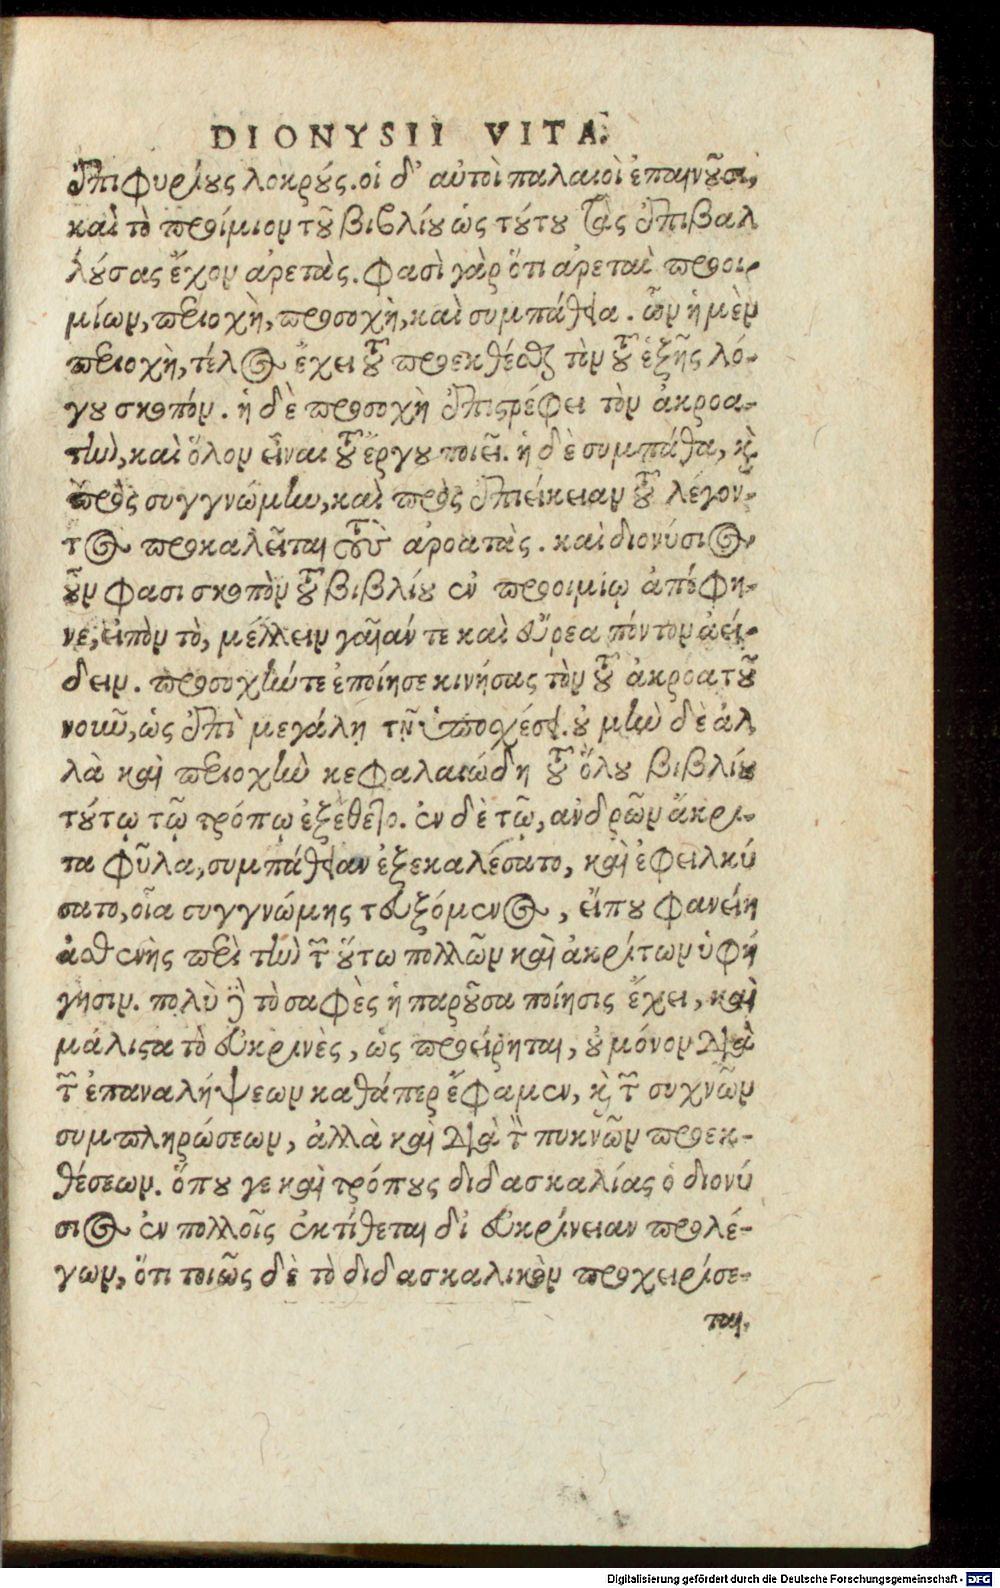 DIONYSII VITA.
ἐπιζυρίους λοκρούς. οἱ δ' αὐτοὶ παλαιοὶ ἐπαινοῦσι,
καὶ τὸ προίμιον τοῦ βιβλίου ὡς τούτου τὰς ἐπιβαλ
λούσας ἔχον ἀρετάς. φασὶ γὰρ ὅτι ἀρεταὶ προοι
μίων, περιοχὴ, προσοχὴ, καὶ συμπάθεια. ὧν ἡ μὲν
περιοχὴ, τέλος ἔχει τοῦ προεκθέσθαι τὸν τοῦ ἑξῆς λό-
γου σκοπόν. ἡ δὲ προσοχὴ ἐπιστρέφει τὸν ἀκροα-
τὴν, καὶ ὅλον εἶναι τοῦ ἔργου ποιεῖ. ἡ δὲ συμπάθεια, καὶ
πρὸς συγγνώμην, καὶ πρὸς ἐπιείκειαν τοῦ λέγον-
τος προκαλεῖται τοὺς ἀροατάς. καὶ διονύσιος
οὖν φασι σκοπὸν τοῦ βιβλίου ἐν προοιμίῳ ἀπέφη-
νε, εἰπὸν τὸ, μέλλειν γαῖάν τε καὶ εὔρεα πόντον ἀεί-
δειν. προσοχήν τε ἐποίησε κινήσας τὸν τοῦ ἀκροατοῦ
νουῦ, ὡς ἐπὶ μεγάλῃ τῇ ὑποσχέσει. οὐ μὴν δὲ ἀλ
λὰ καὶ περιοχὴν κεφαλαιώδη τοῦ ὅλου βιβλίου
τούτῳ τῷ τρόπῳ ἐξέθετο. ἐν δὲ τῷ, ἀνδρῶν ἄκρι-
τα φῦλα, συμπάθειαν ἐξεκαλέσατο, καὶ ἐφειλκύ
σατο, οἷα συγγνώμης τευξόμενος, εἴπου φανείη
ἀσθενὴς περὶ τὴν τῶν οὕτω πολλῶν καὶ ἀκρίτων ὑφή
γησιν. πολὺ δὲ τὸ σαφὲς ἡ παροῦσα ποίησις ἔχει, καὶ
μάλιστα τὸ εὐκρινὲς, ὡς προείρηται, οὐ μόνον διὰ
τῶν ἐπαναλήψεων καθάπερ ἔφαμεν, καὶ τῶν συχνῶν
συμπληρώσεων, ἀλλὰ καὶ διὰ τῶν πυκνῶν προεκ-
θέσεων. ὅπου γε καὶ τρόπους διδασκαλίας ὁ διονύ
σιος ἐν πολλοῖς ἐκτίθεται δι' εὐκρίνειαν προλέ-
γων, ὅτι ποιῶς δὲ τὸ διδασκαλικὸν προχειρίσε-
ται.
Digitalisierung gefördert durch die Deutsche Forschungsgemeinschaft - DFG